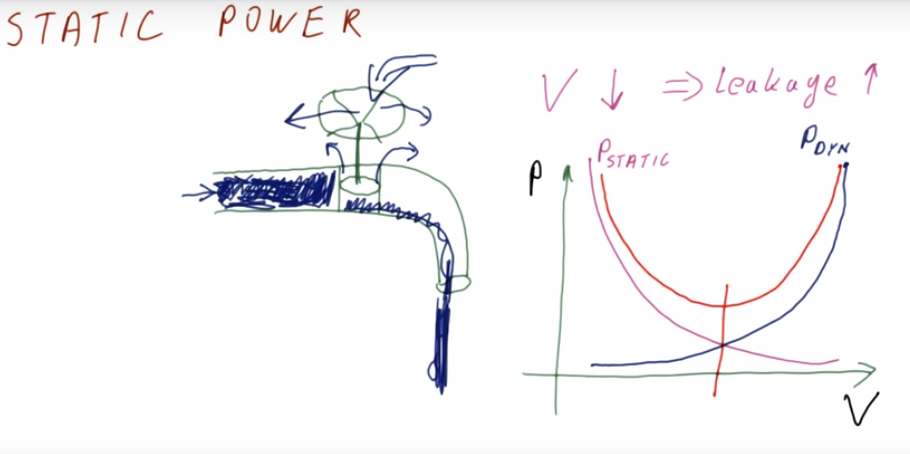 STATIC POWER
V ↓ ⇒ Leakage ↑
P
PSTATIC
PDYN
V